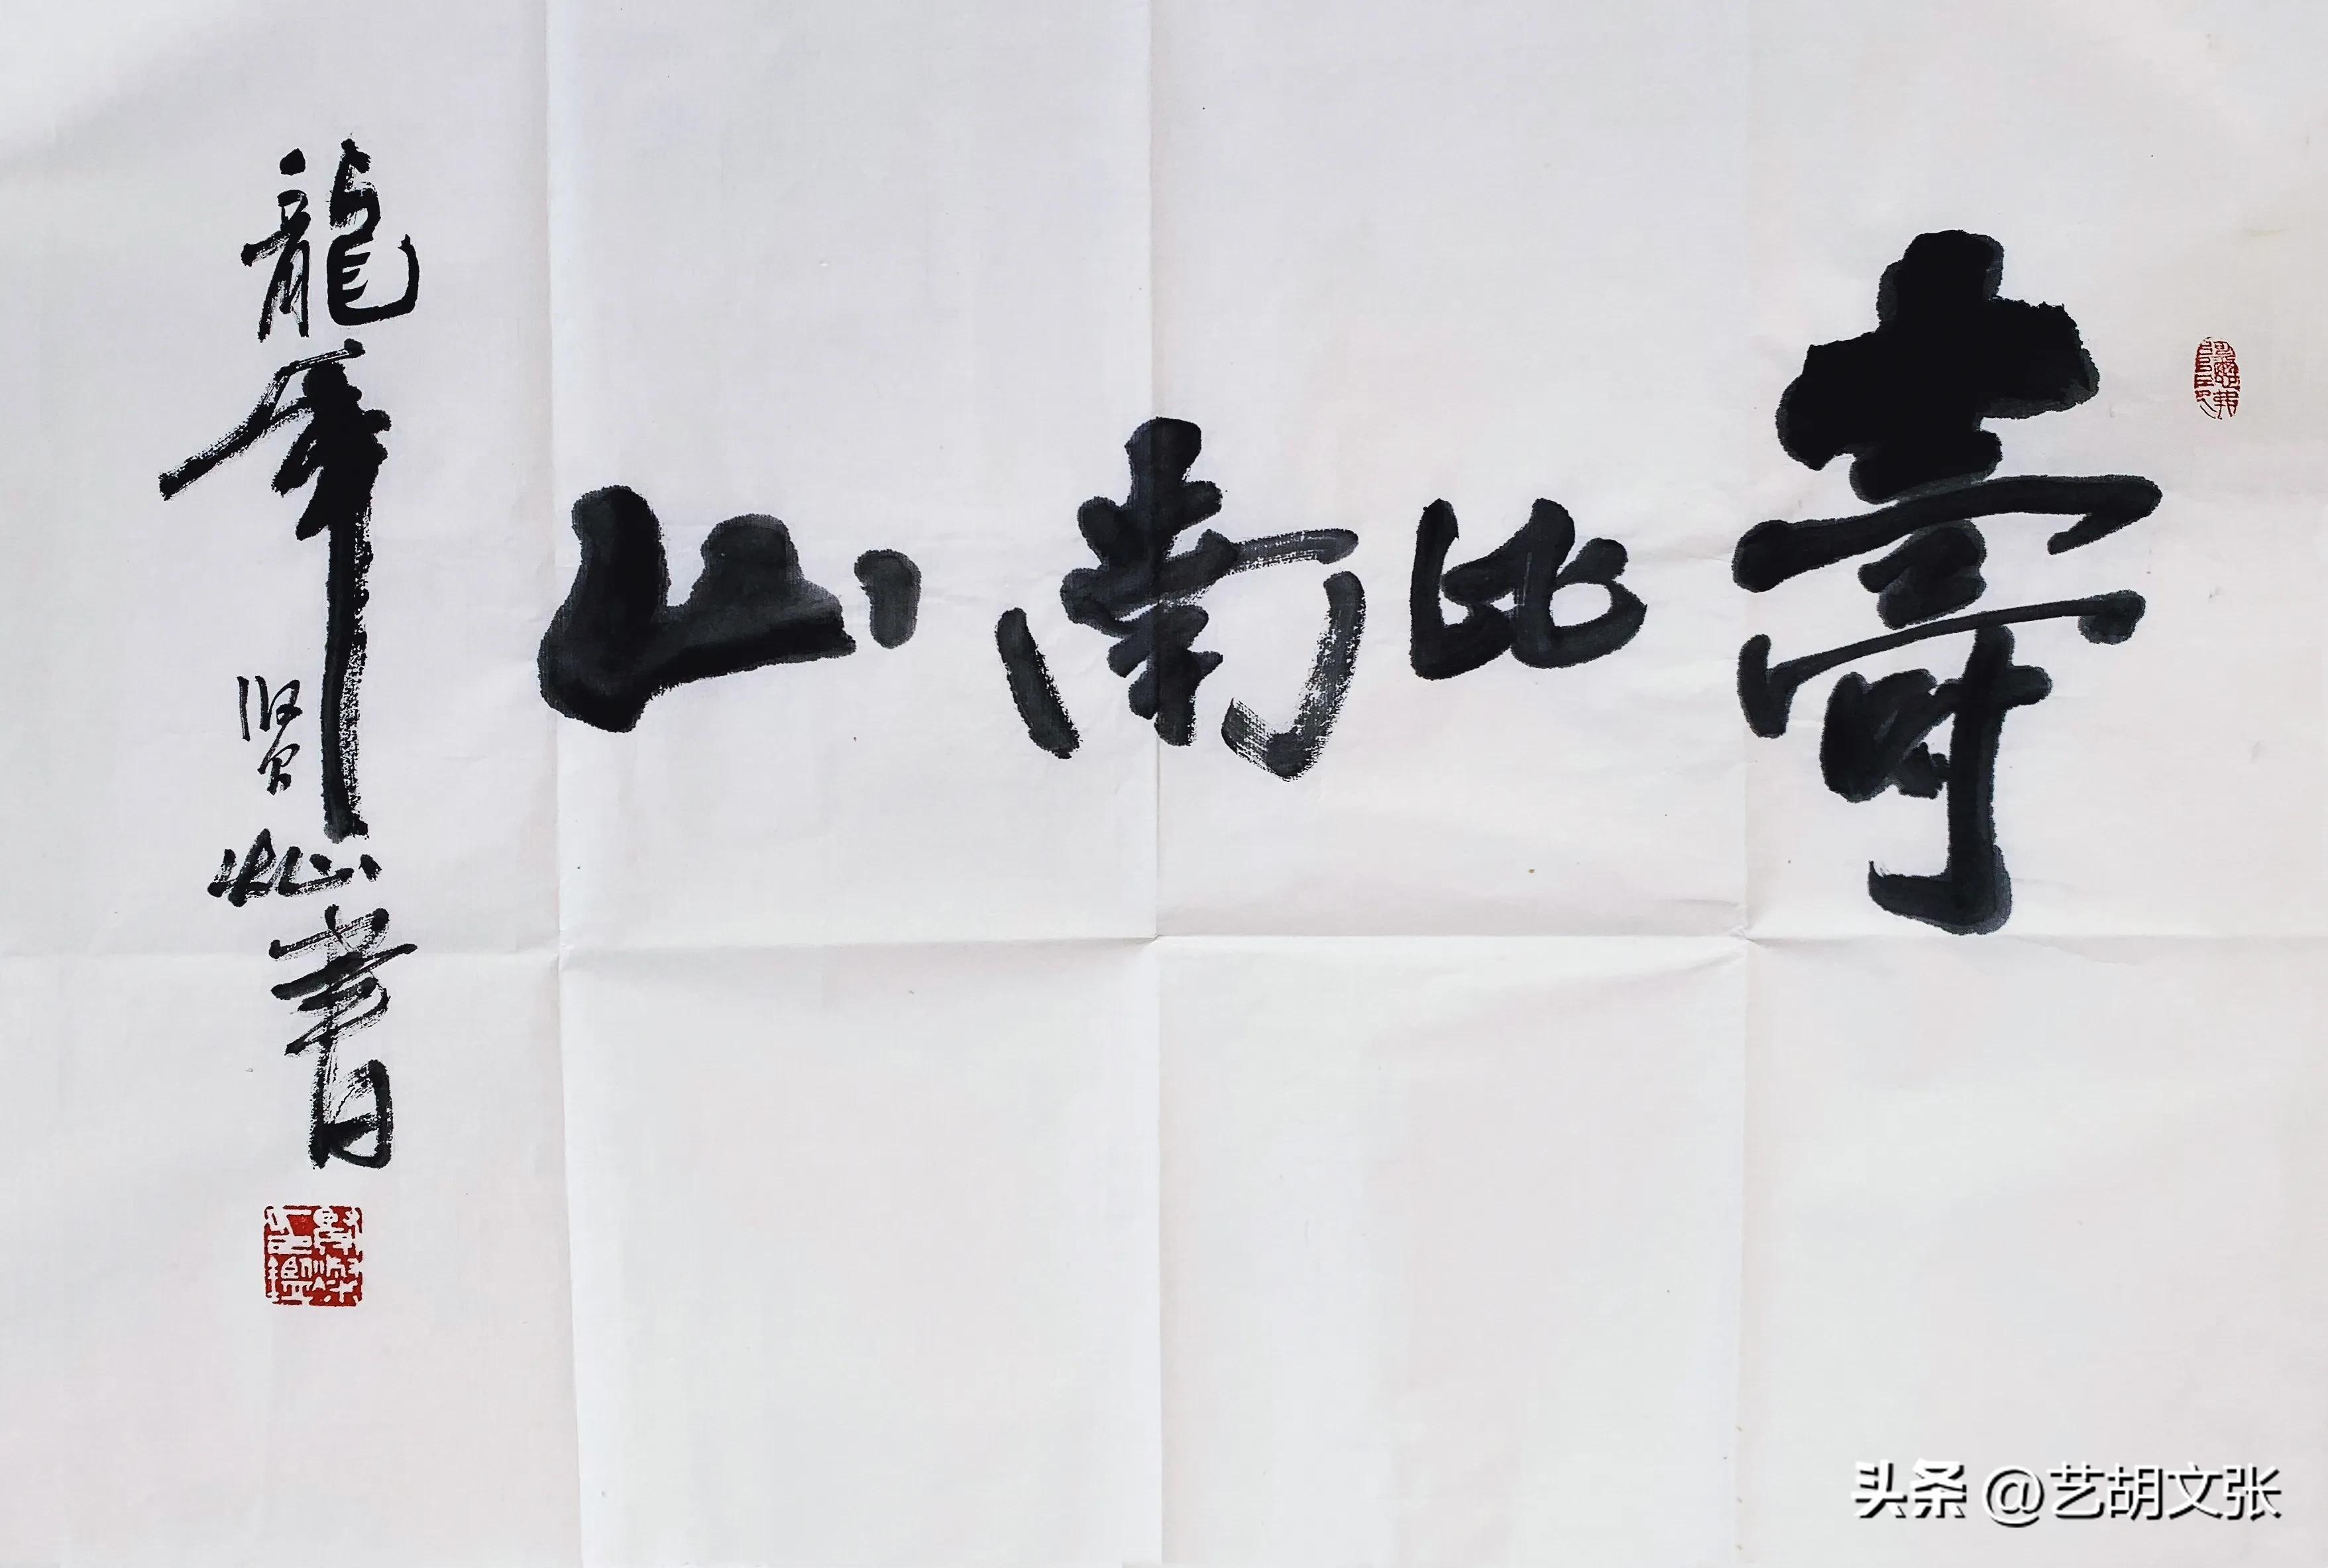 壽比南山
龍年
賢灿書
头条 @艺胡文张